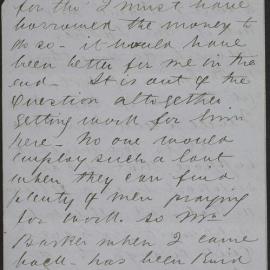 for tho' I must have
borrowed the money to
do so - it would have
been better for me in the
end - It is out of the
question altogether
getting work for him
here - No one would
employ such a lout
when they can find
plenty of men praying
for work. so Mr
Barker when I came
back - has been